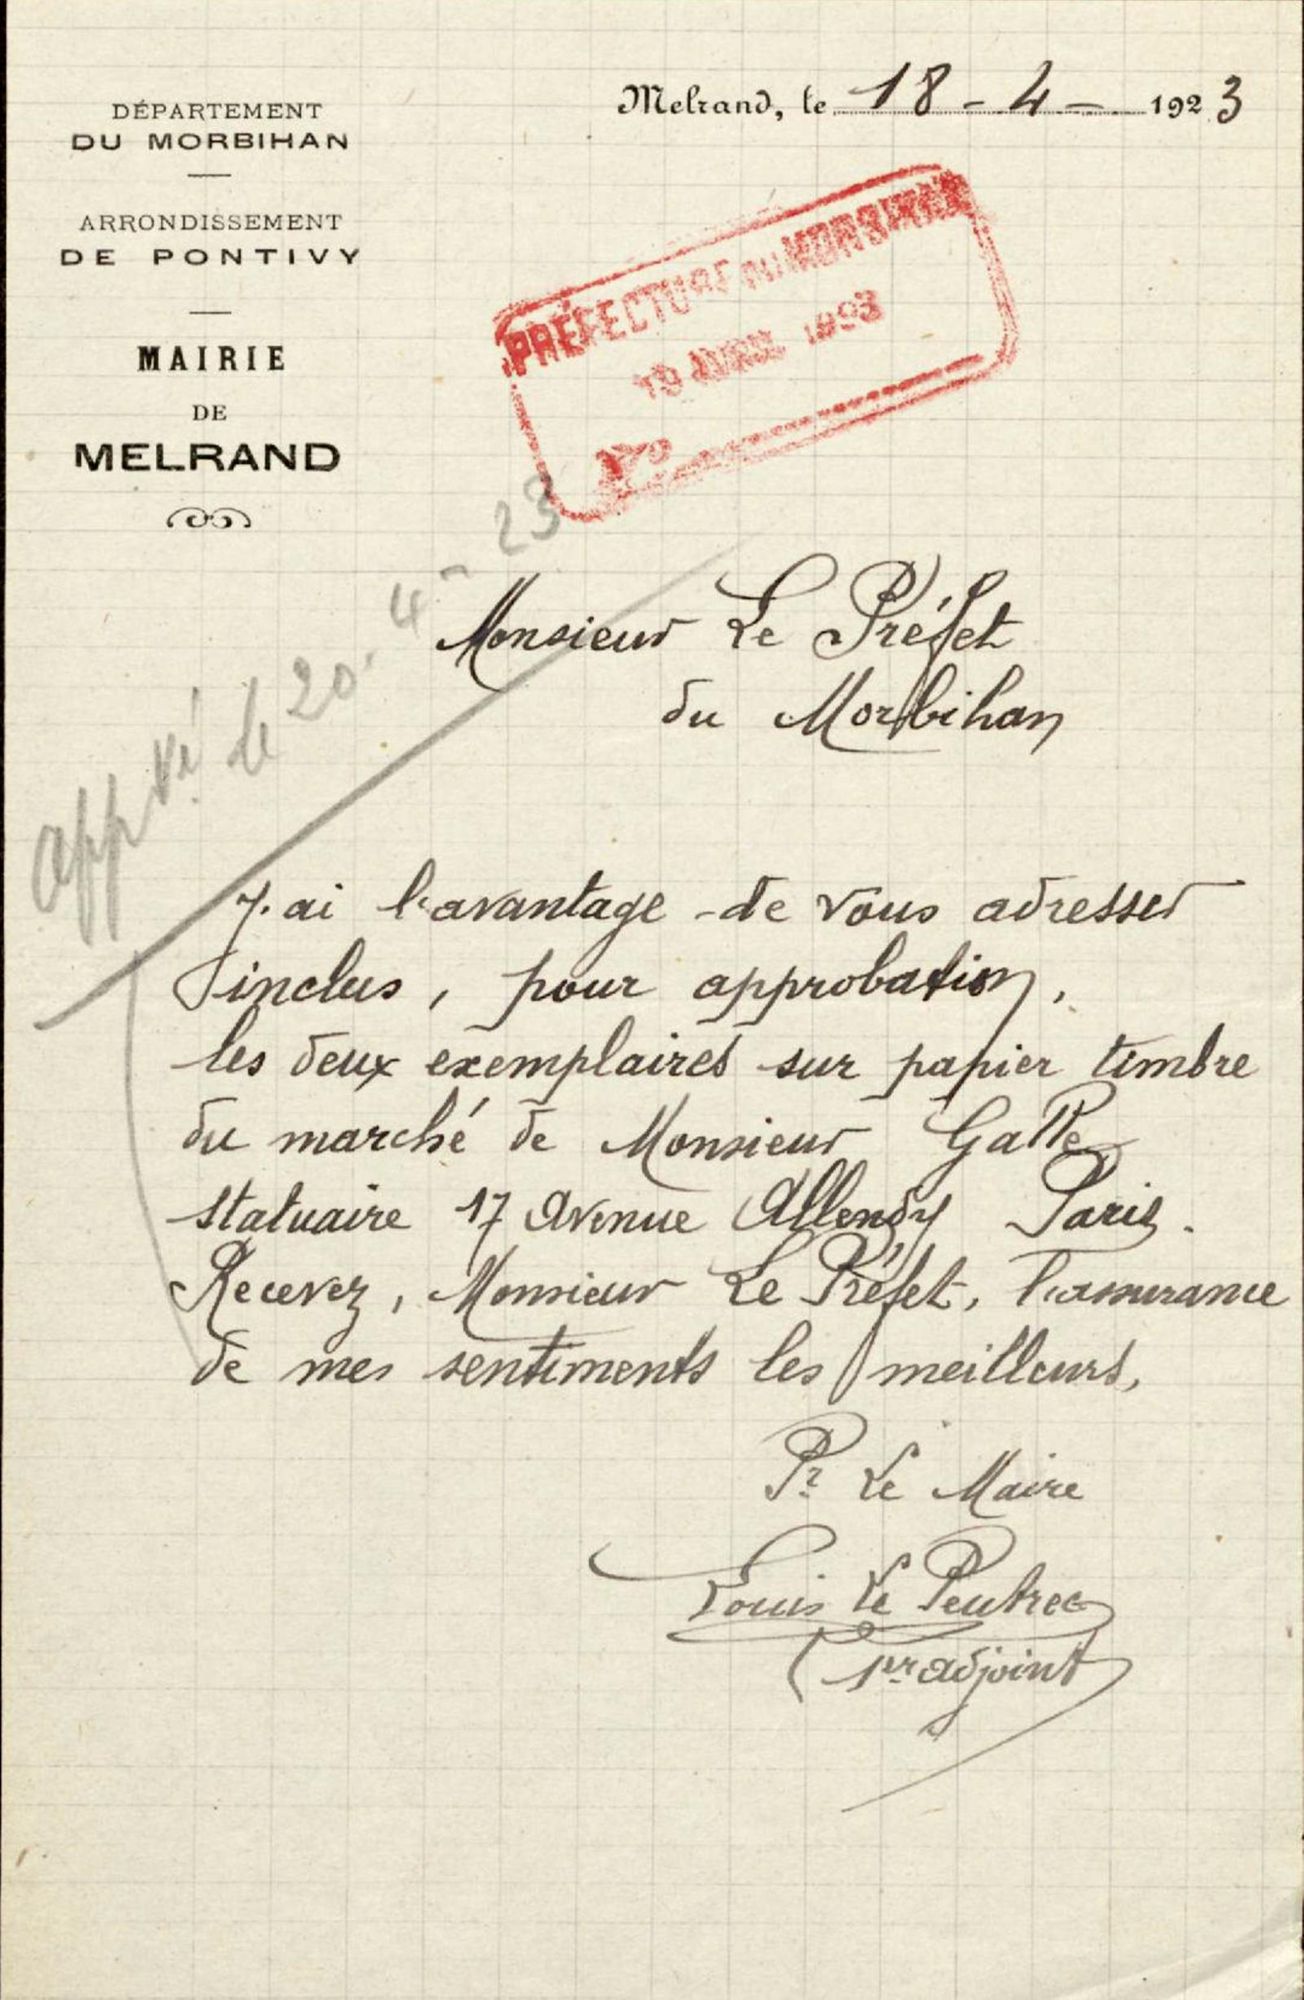 DÉPARTEMENT
DU MORBIHAN
ARRONDISSEMENT
DE PONTIVY
MAIRIE
DE
MELRAND
Melrand, le 18 - 4 - 1923
PRÉFECTURE DU MORBIHAN
19 AVRIL 1923
appvé le 20. 4 - 23
Monsieur Le Préfet
du Morbihan
J'ai l'avantage de vous adresser
inclus, pour approbation,
les deux exemplaires sur papier timbre
du marché de Monsieur Galle
statuaire 17 Avenue Allendy Paris.
Recevez, Monsieur Le Préfet, l'assurance
de mes sentiments les meilleurs,
Pr Le Maire
Louis Le Peutrec
1er adjoint